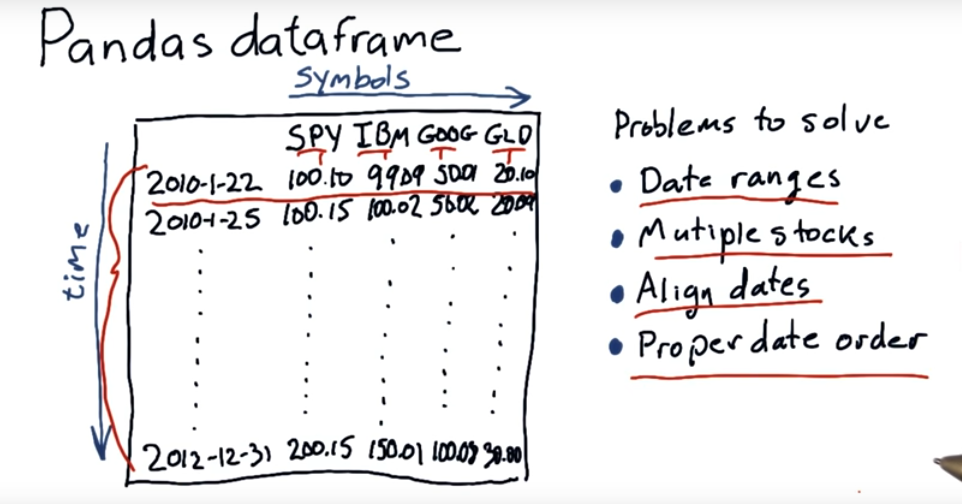 Pandas dataframe
symbols
SPY IBM GOOG GLD
2010-1-22 100.10 99.09 50.01 20.10
2010-1-25 100.15 100.02 50.02 20.09
time
2012-12-31 200.15 150.01 100.03 30.00
Problems to solve
• Date ranges
• Mutiple stocks
• Align dates
• Proper date order